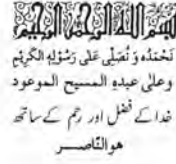 بسم الله الرحمن الرحيم
نَحْمَدُہٗ وَ نُصَلِّی عَلٰی رَسُوْلِہِ الْکَرِیْمِ
وعلٰی عبدہ المسیح الموعود
خدا کے فضل اور رحم کے ساتھ
ھو النّاصــر